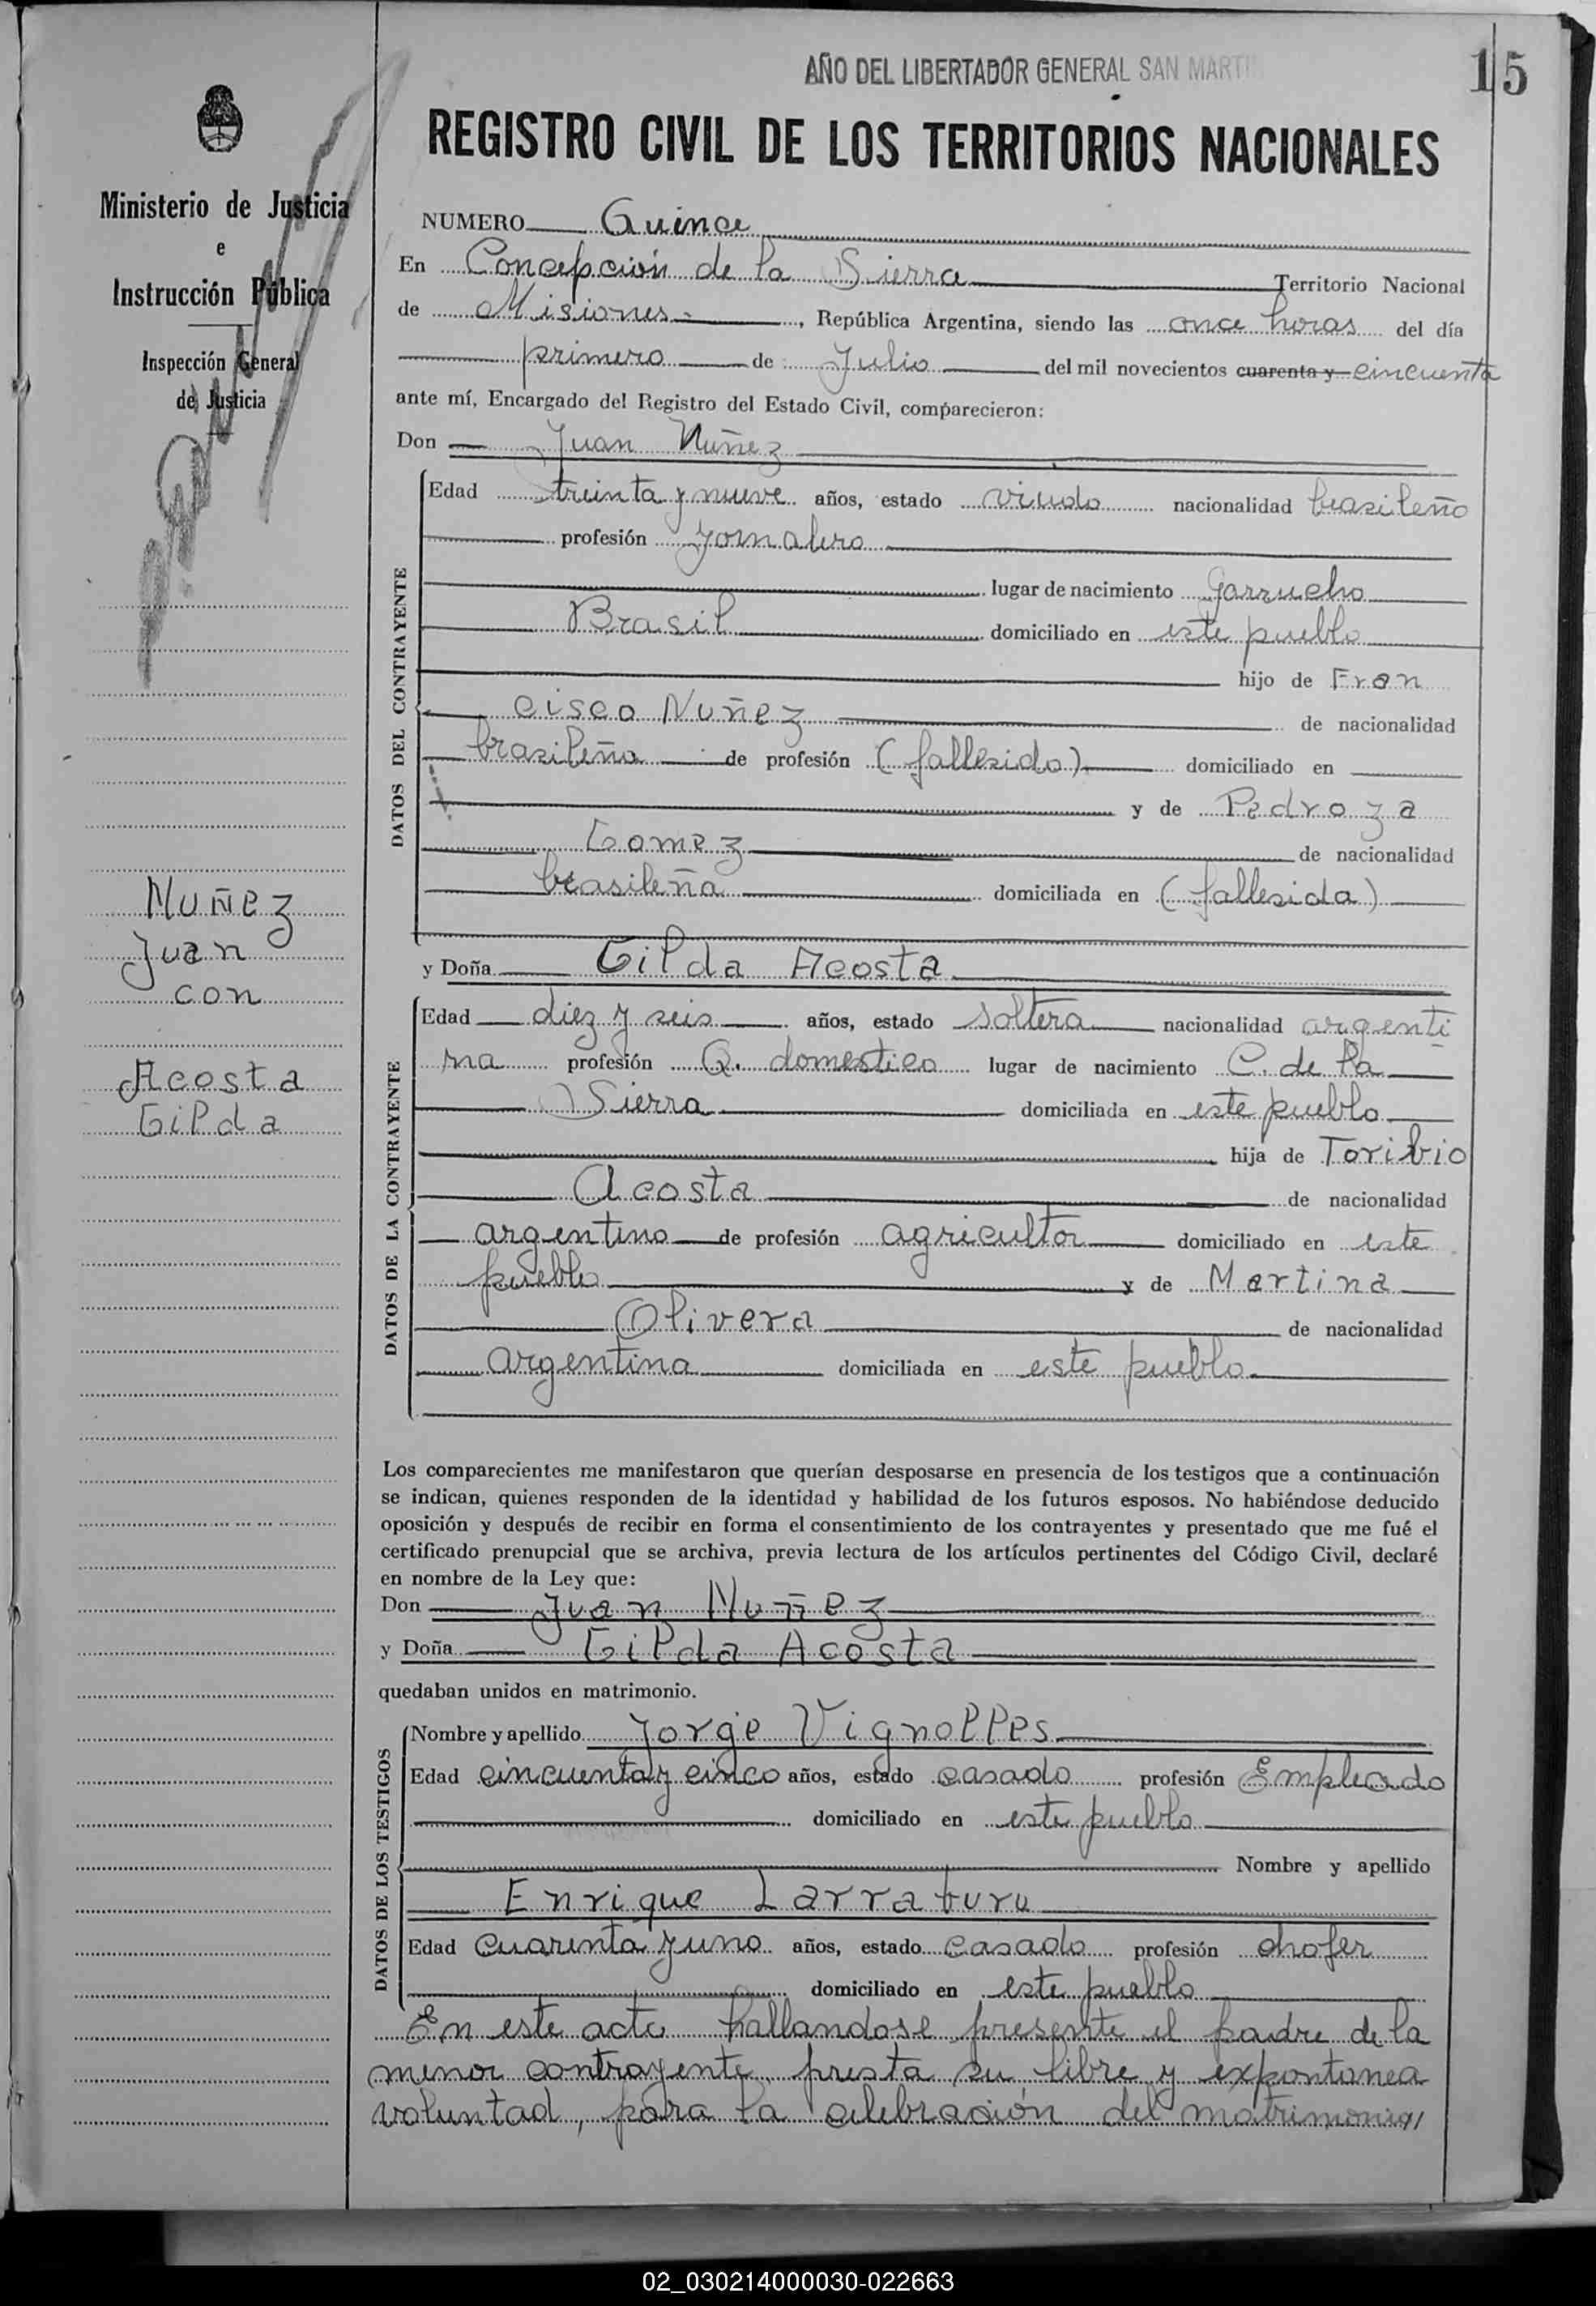 AÑO DEL LIBERTADOR GENERAL SAN MARTI
15
Ministerio de Justicia
e
Instrucción Pública
Inspección General
de Justicia
Nuñez
Juan
con
Acosta
Gilda
REGISTRO CIVIL DE LOS TERRITORIOS NACIONALES
NUMERO Quince
En Concepción de la Sierra Territorio Nacional
de Misiones, República Argentina, siendo las once horas del día
primero de Julio del mil novecientos cuarenta y cincuenta
ante mí, Encargado del Registro del Estado Civil, comparecieron:
Don Juan Nuñez
DATOS DEL CONTRAYENTE
Edad treinta y nueve años, estado viudo nacionalidad brasileño
profesión Jornalero
lugar de nacimiento Garrucho
Brasil domiciliado en este pueblo
hijo de Fran
cisco Nuñez de nacionalidad
brasileña de profesión (fallesido) domiciliado en
y de Pedroza
Gomez de nacionalidad
brasileña domiciliada en (fallesida)
y Doña Gilda Acosta
DATOS DE LA CONTRAYENTE
Edad diez y seis años, estado soltera nacionalidad argenti
na profesión Q. domestico lugar de nacimiento C. de la
Sierra domiciliada en este pueblo
hija de Toribio
Acosta de nacionalidad
argentino de profesión agricultor domiciliado en este
pueblo y de Martina
Olivera de nacionalidad
argentina domiciliada en este pueblo
Los comparecientes me manifestaron que querían desposarse en presencia de los testigos que a continuación
se indican, quienes responden de la identidad y habilidad de los futuros esposos. No habiéndose deducido
oposición y después de recibir en forma el consentimiento de los contrayentes y presentado que me fué el
certificado prenupcial que se archiva, previa lectura de los artículos pertinentes del Código Civil, declaré
en nombre de la Ley que:
Don Juan Nuñez
y Doña Gilda Acosta
quedaban unidos en matrimonio.
DATOS DE LOS TESTIGOS
Nombre y apellido Jorge Vignolles
Edad cincuenta y cinco años, estado casado profesión Empleado
domiciliado en este pueblo
Nombre y apellido
Enrique Larraburu
Edad cuarenta y uno años, estado casado profesión chofer
domiciliado en este pueblo
En este acto hallandose presente el padre de la
menor contrayente, presta su libre y expontanea
voluntad, para la celebración del matrimonio
02_030214000030-022663